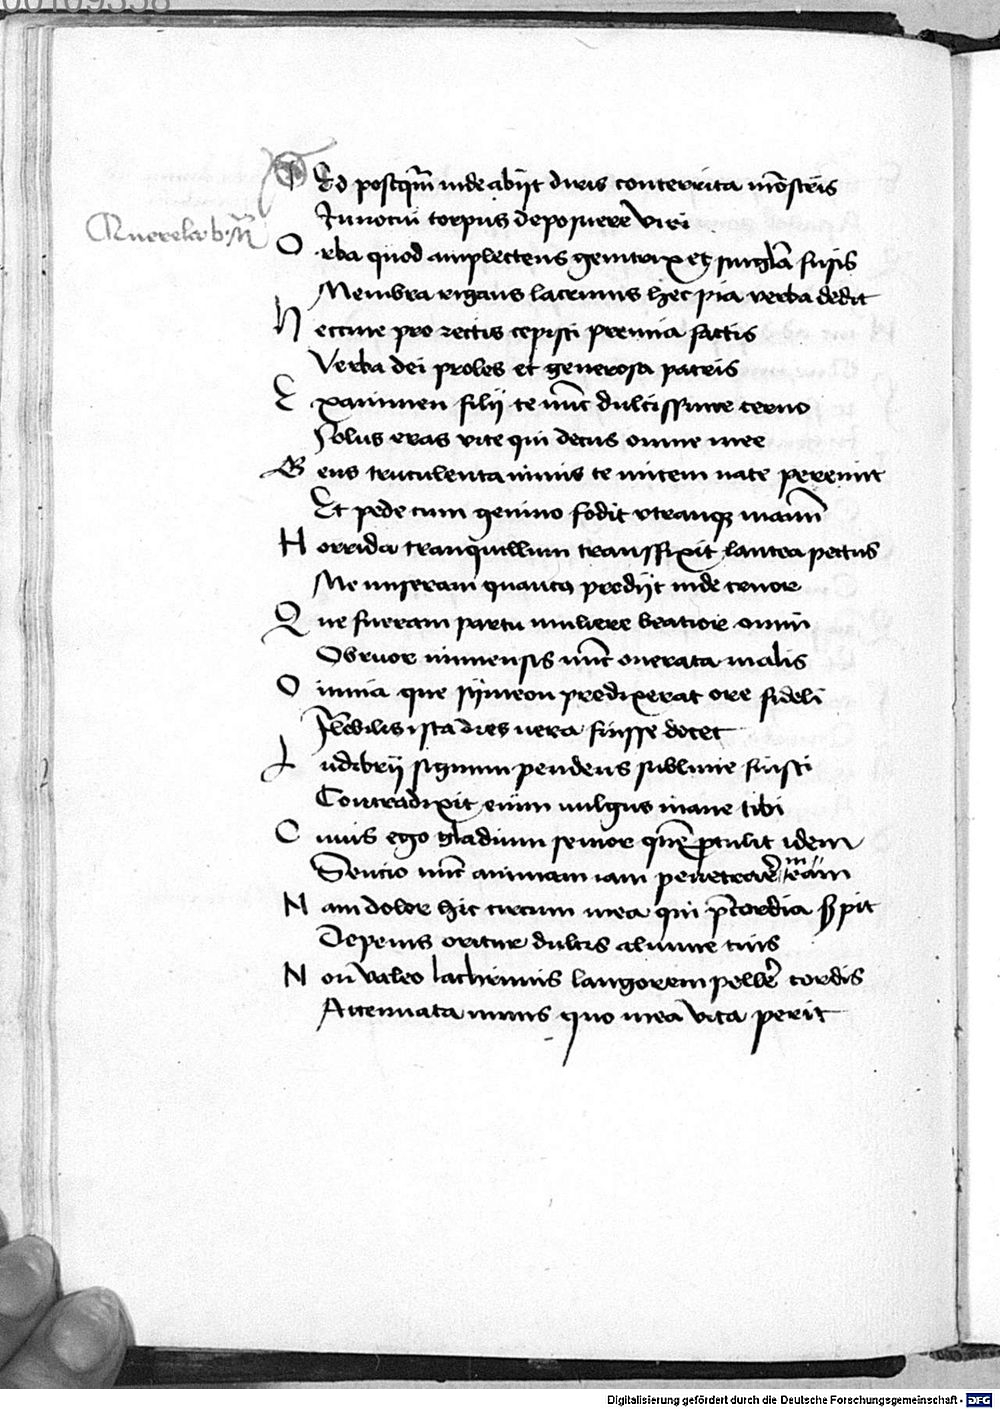 00109558
Sed postq̃m inde abijt duris conterrita mõstris
Innocui corpus deposuere viri
Querela b. M
Orba quod amplectens genitrix et singl̃a fusis
Membra rigans lacrimis hec pia verba dedit
Heccine pro rectis cepisti premia factis
Verba dei proles et generosa patris
Exanimen filij te nũc dulcissime cerno
Solus eras vite qui decus omne mee
Gens truculenta nimis te mitem nate peremit
Et pede cum gemino fodit utranq; manũ
Horrida tranquillum transfixit lancea pectus
Me miseram quantus prodijt inde cruor
Que fueram partu muliere beatior omni
Obruor inmensis nũc onerata malis
Omnia que symeon predixerat ore fideli
Flebilis ista dies vera fuisse docet
Ludibrij signum pendens sublime fuisti
Contradixit enim vulgus inane tibi
Cuius ego gladium senior quẽ protulit idem
Sencio nũc animam iam penetrare meam
Nam dolor hic circum mea qui p̃cordia serpit
Depenis oritur dulcis alumne tuis
Non valeo lachrimis langorem peller̃ cordis
Attenuata nimis quo mea vita perit
Digitalisierung gefördert durch die Deutsche Forschungsgemeinschaft - DFG